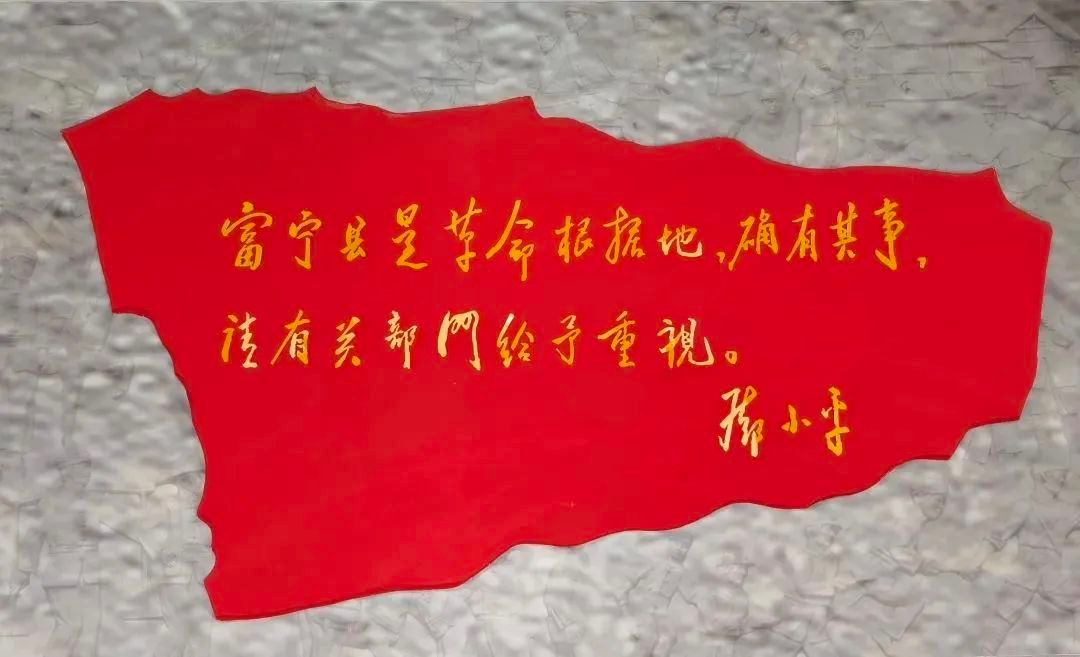 富宁县是革命根据地,确有其事,
请有关部門给予重視。
邓小平